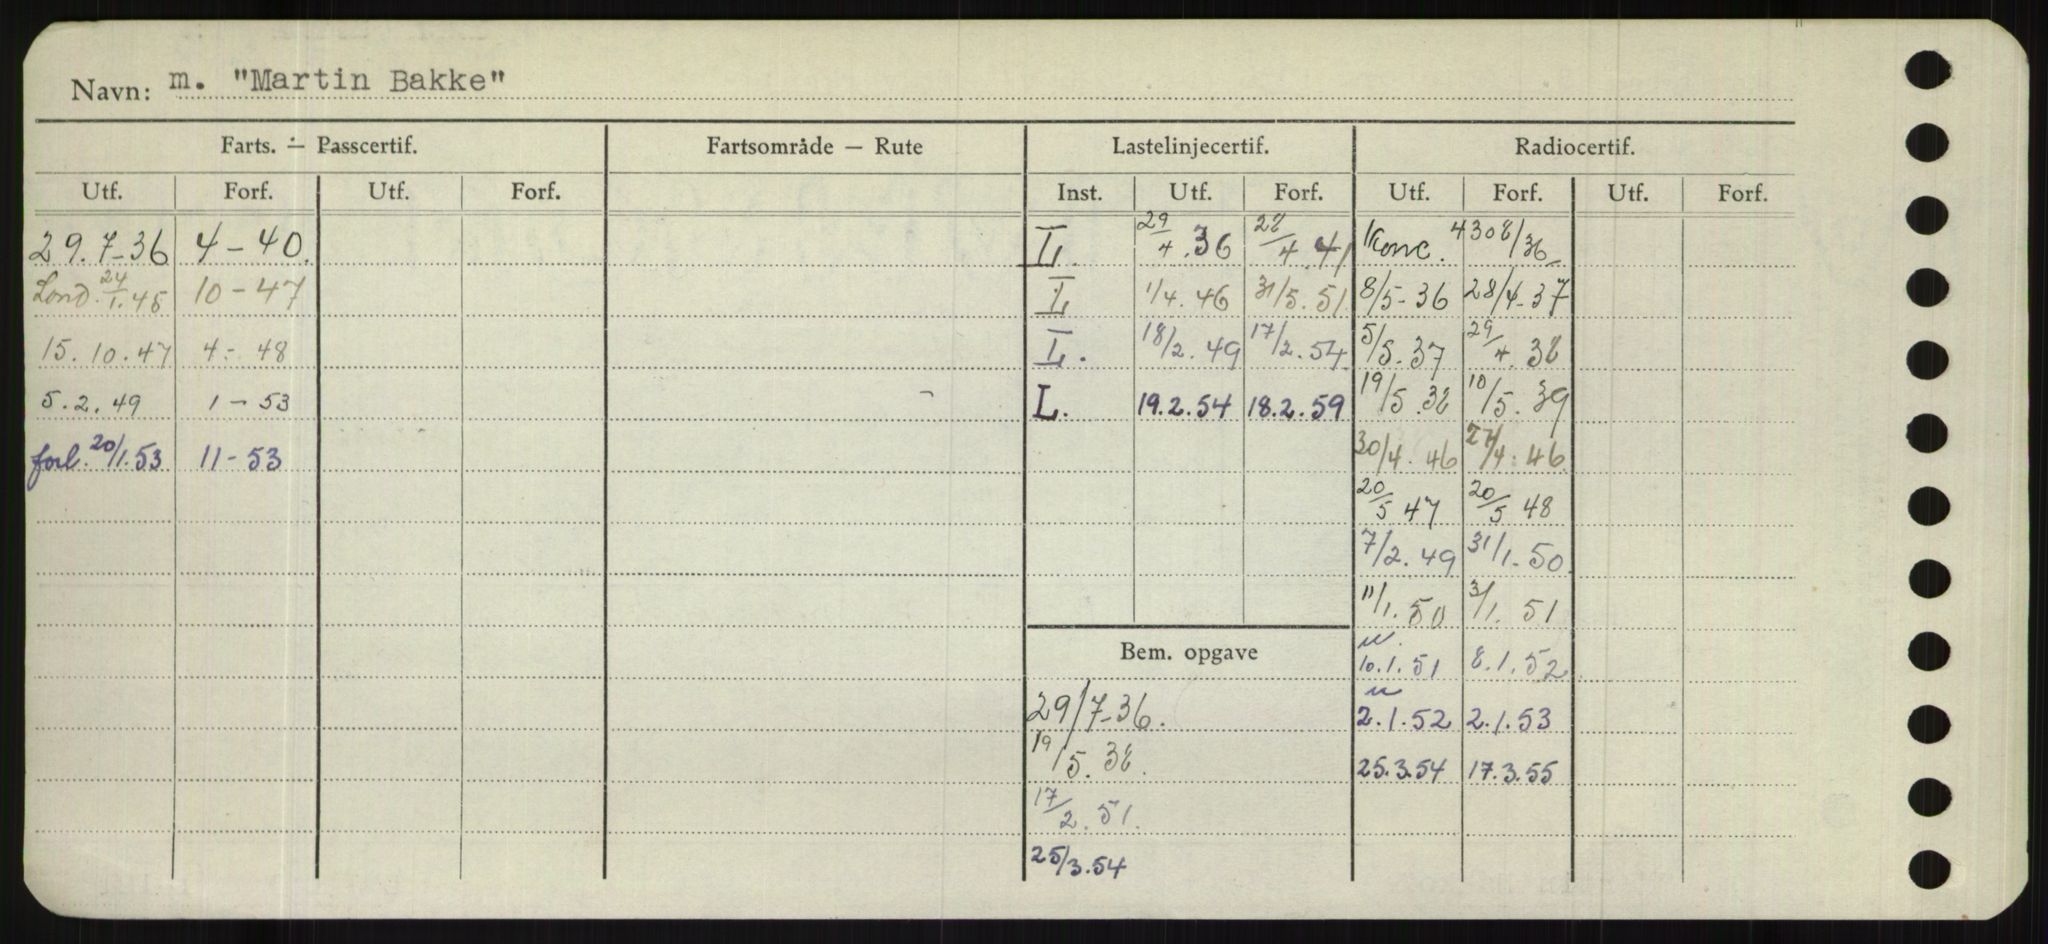 Navn: m. "Martin Bakke"
Farts. ÷ Passcertif. Fartsområde — Rute Lastelinjecertif. Radiocertif.
Utf. Forf. Utf. Forf. Inst. Utf. Forf. Utf. Forf. Utf. Forf.
29.7-36 4-40. L. 29/4.36 28/4.41 Konc. 4308/36
Lond. 24/1.45 10-47 L 1/4.46 31/5.51 8/5-36 28/4-37
15.10.47 4-48 L. 18/2.49 17/2.54 5/5.37 29/4.38
5.2.49 1-53 L. 19.2.54 18.2.59 19/5.38 10/5.39
forl. 20/1.53 11-53 30/4.46 27/4.46
20/5 47 20/5 48
7/2.49 31/1-50
11/1.50 3/1.51
Bem. opgave 10.1.51 8.1.52
29/7-36. 2.1.52 2.1.53
19/5.38. 25.3.54 17.3.55
17/2.51.
25/3.54